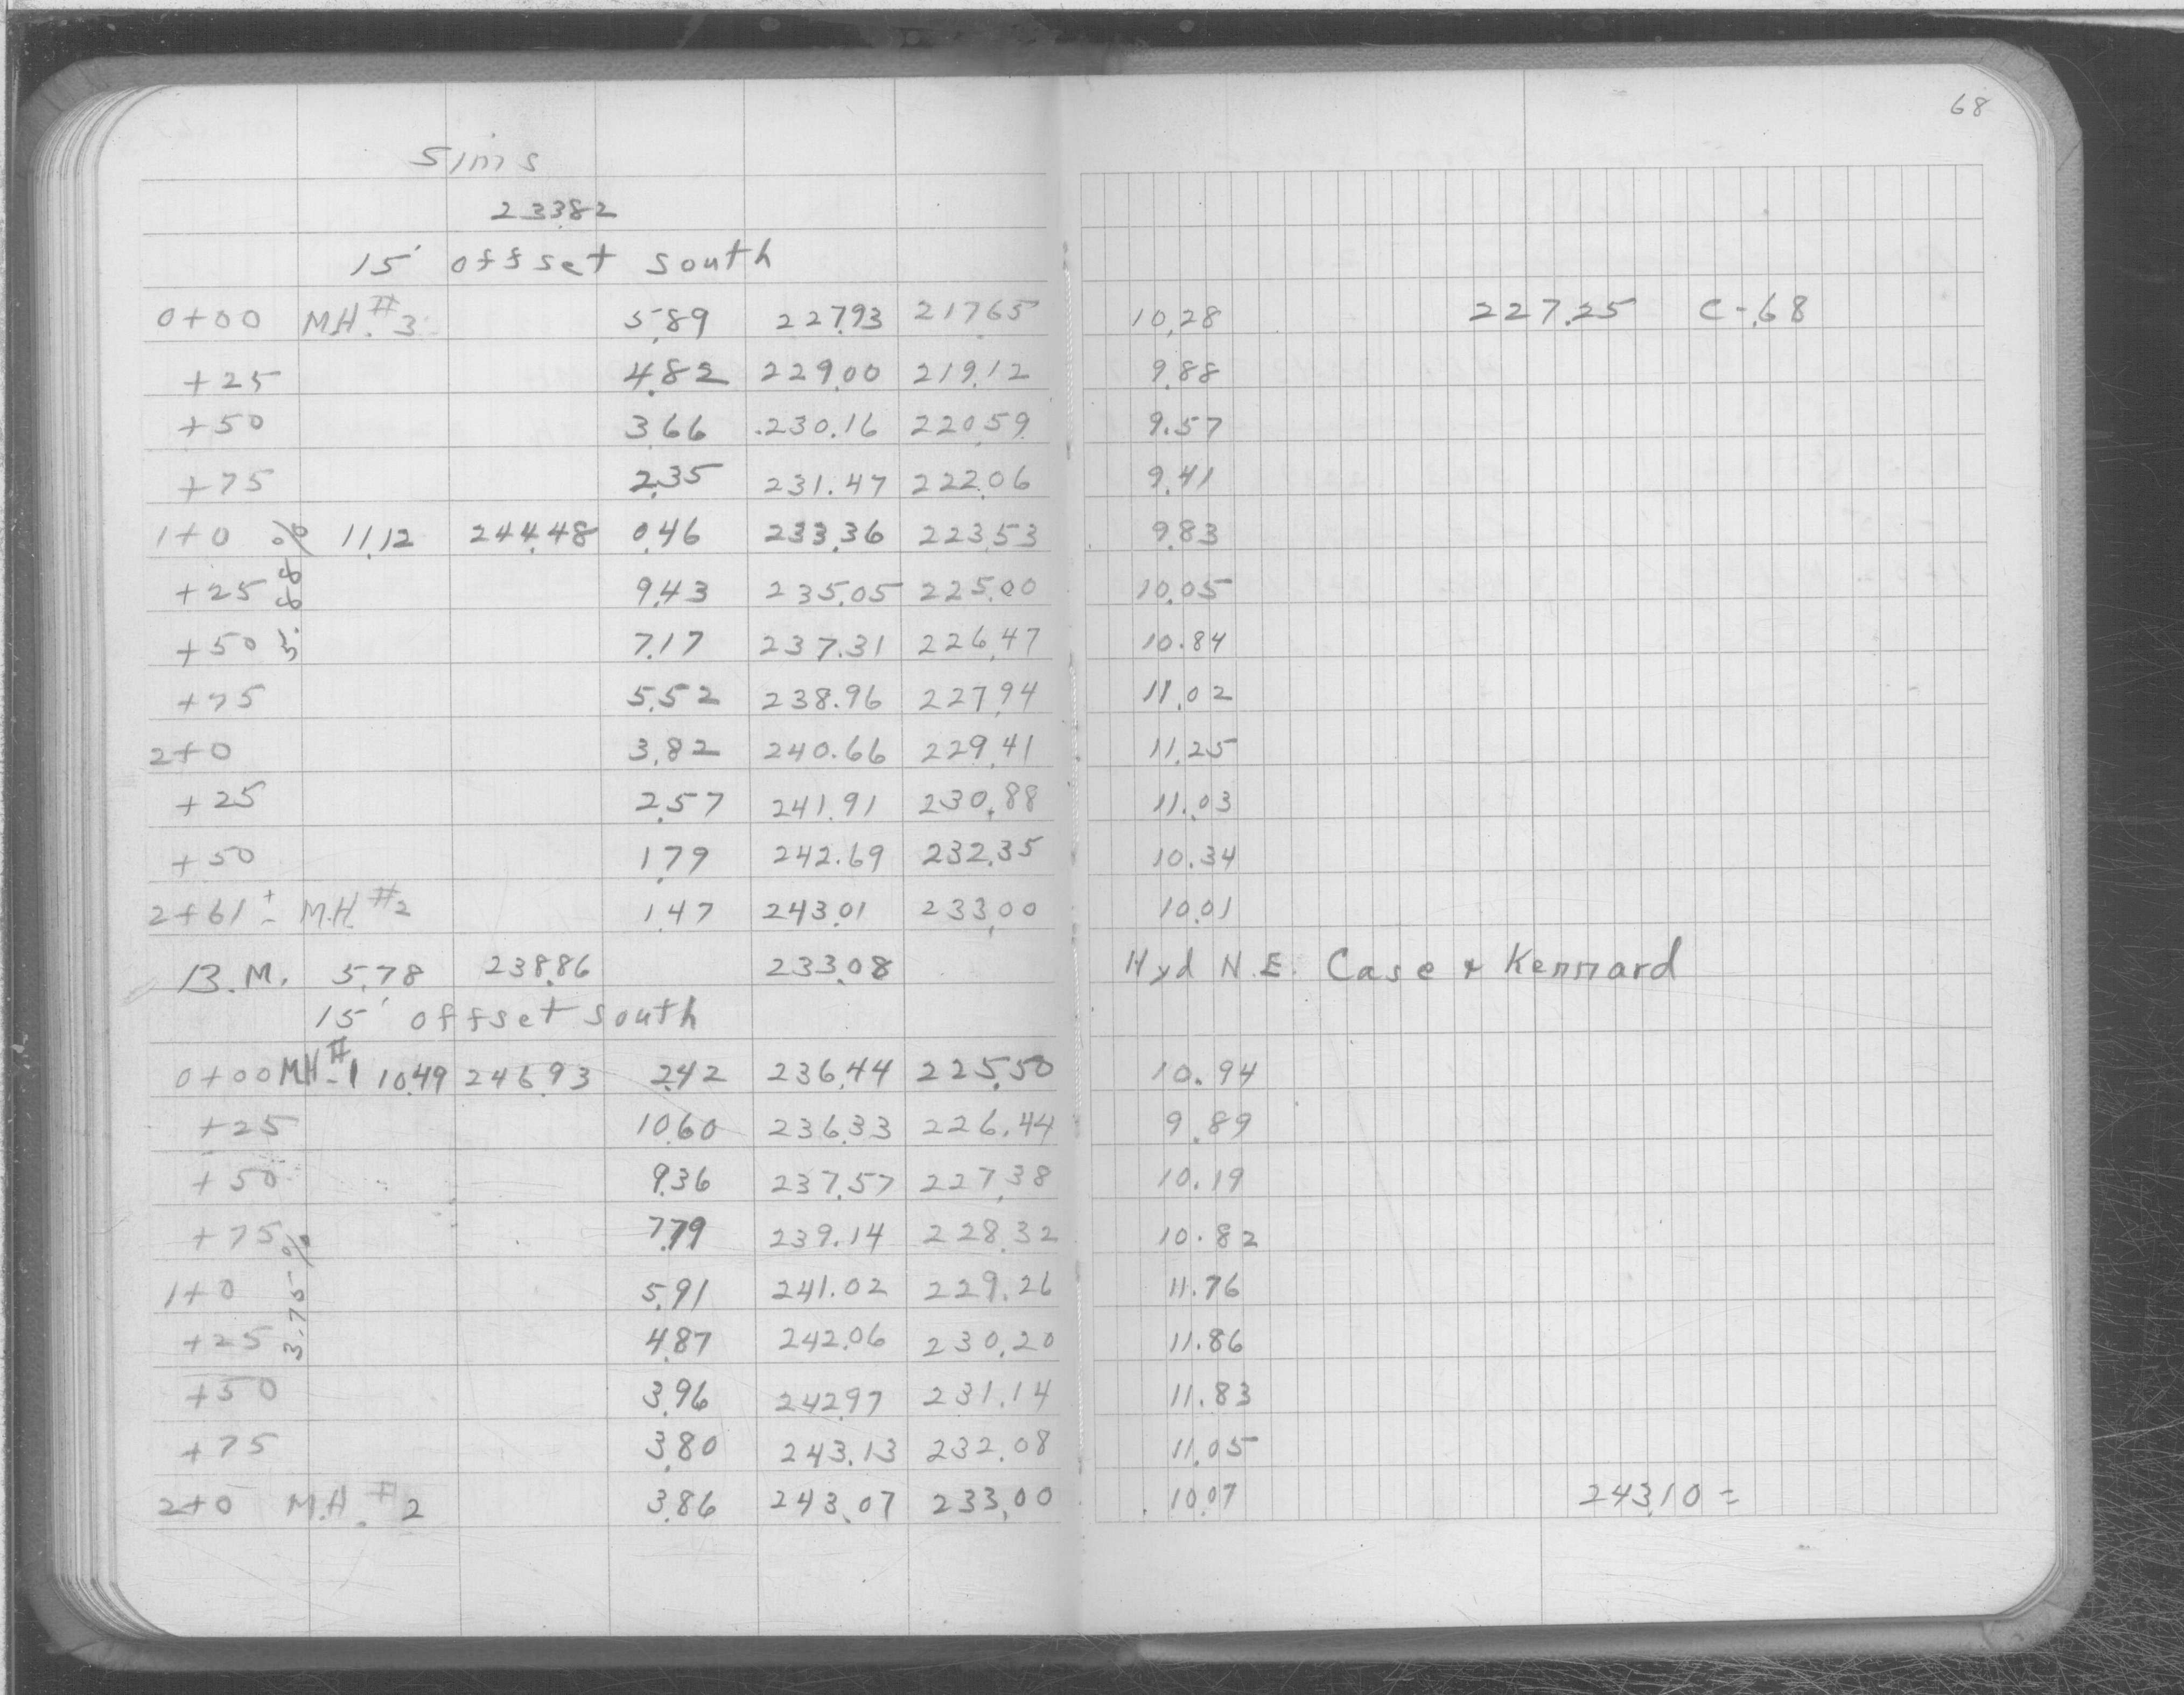 68
Sims
233.82
15' offset south
0+00 M.H. #3 5.89 227.93 217.65 10.28 227.25 C-.68
+25 4.82 229.00 219.12 9.88
+50 3.66 230.16 220.59 9.57
+75 2.35 231.47 222.06 9.41
1+0 11.12 244.48 0.46 233.36 223.53 9.83
+25 9.43 235.05 225.00 10.05
+50 7.17 237.31 226.47 10.84
5.88 %
+75 5.52 238.96 227.94 11.02
2+0 3.82 240.66 229.41 11.25
+25 2.57 241.91 230.88 11.03
+50 1.79 242.69 232.35 10.34
2+61 ± M.H. #2 1.47 243.01 233.00 10.01
B.M. 5.78 238.86 233.08 Hyd N.E. Case & Kennard
15' offset south
0+00 MH #1 10.49 246.93 2.42 236.44 225.50 10.94
+25 10.60 236.33 226.44 9.89
+50 9.36 237.57 227.38 10.19
+75 7.79 239.14 228.32 10.82
1+0 5.91 241.02 229.26 11.76
+25 4.87 242.06 230.20 11.86
3.75 %
+50 3.96 242.97 231.14 11.83
+75 3.80 243.13 232.08 11.05
2+0 M.H. #2 3.86 243.07 233.00 10.07 243.10 =